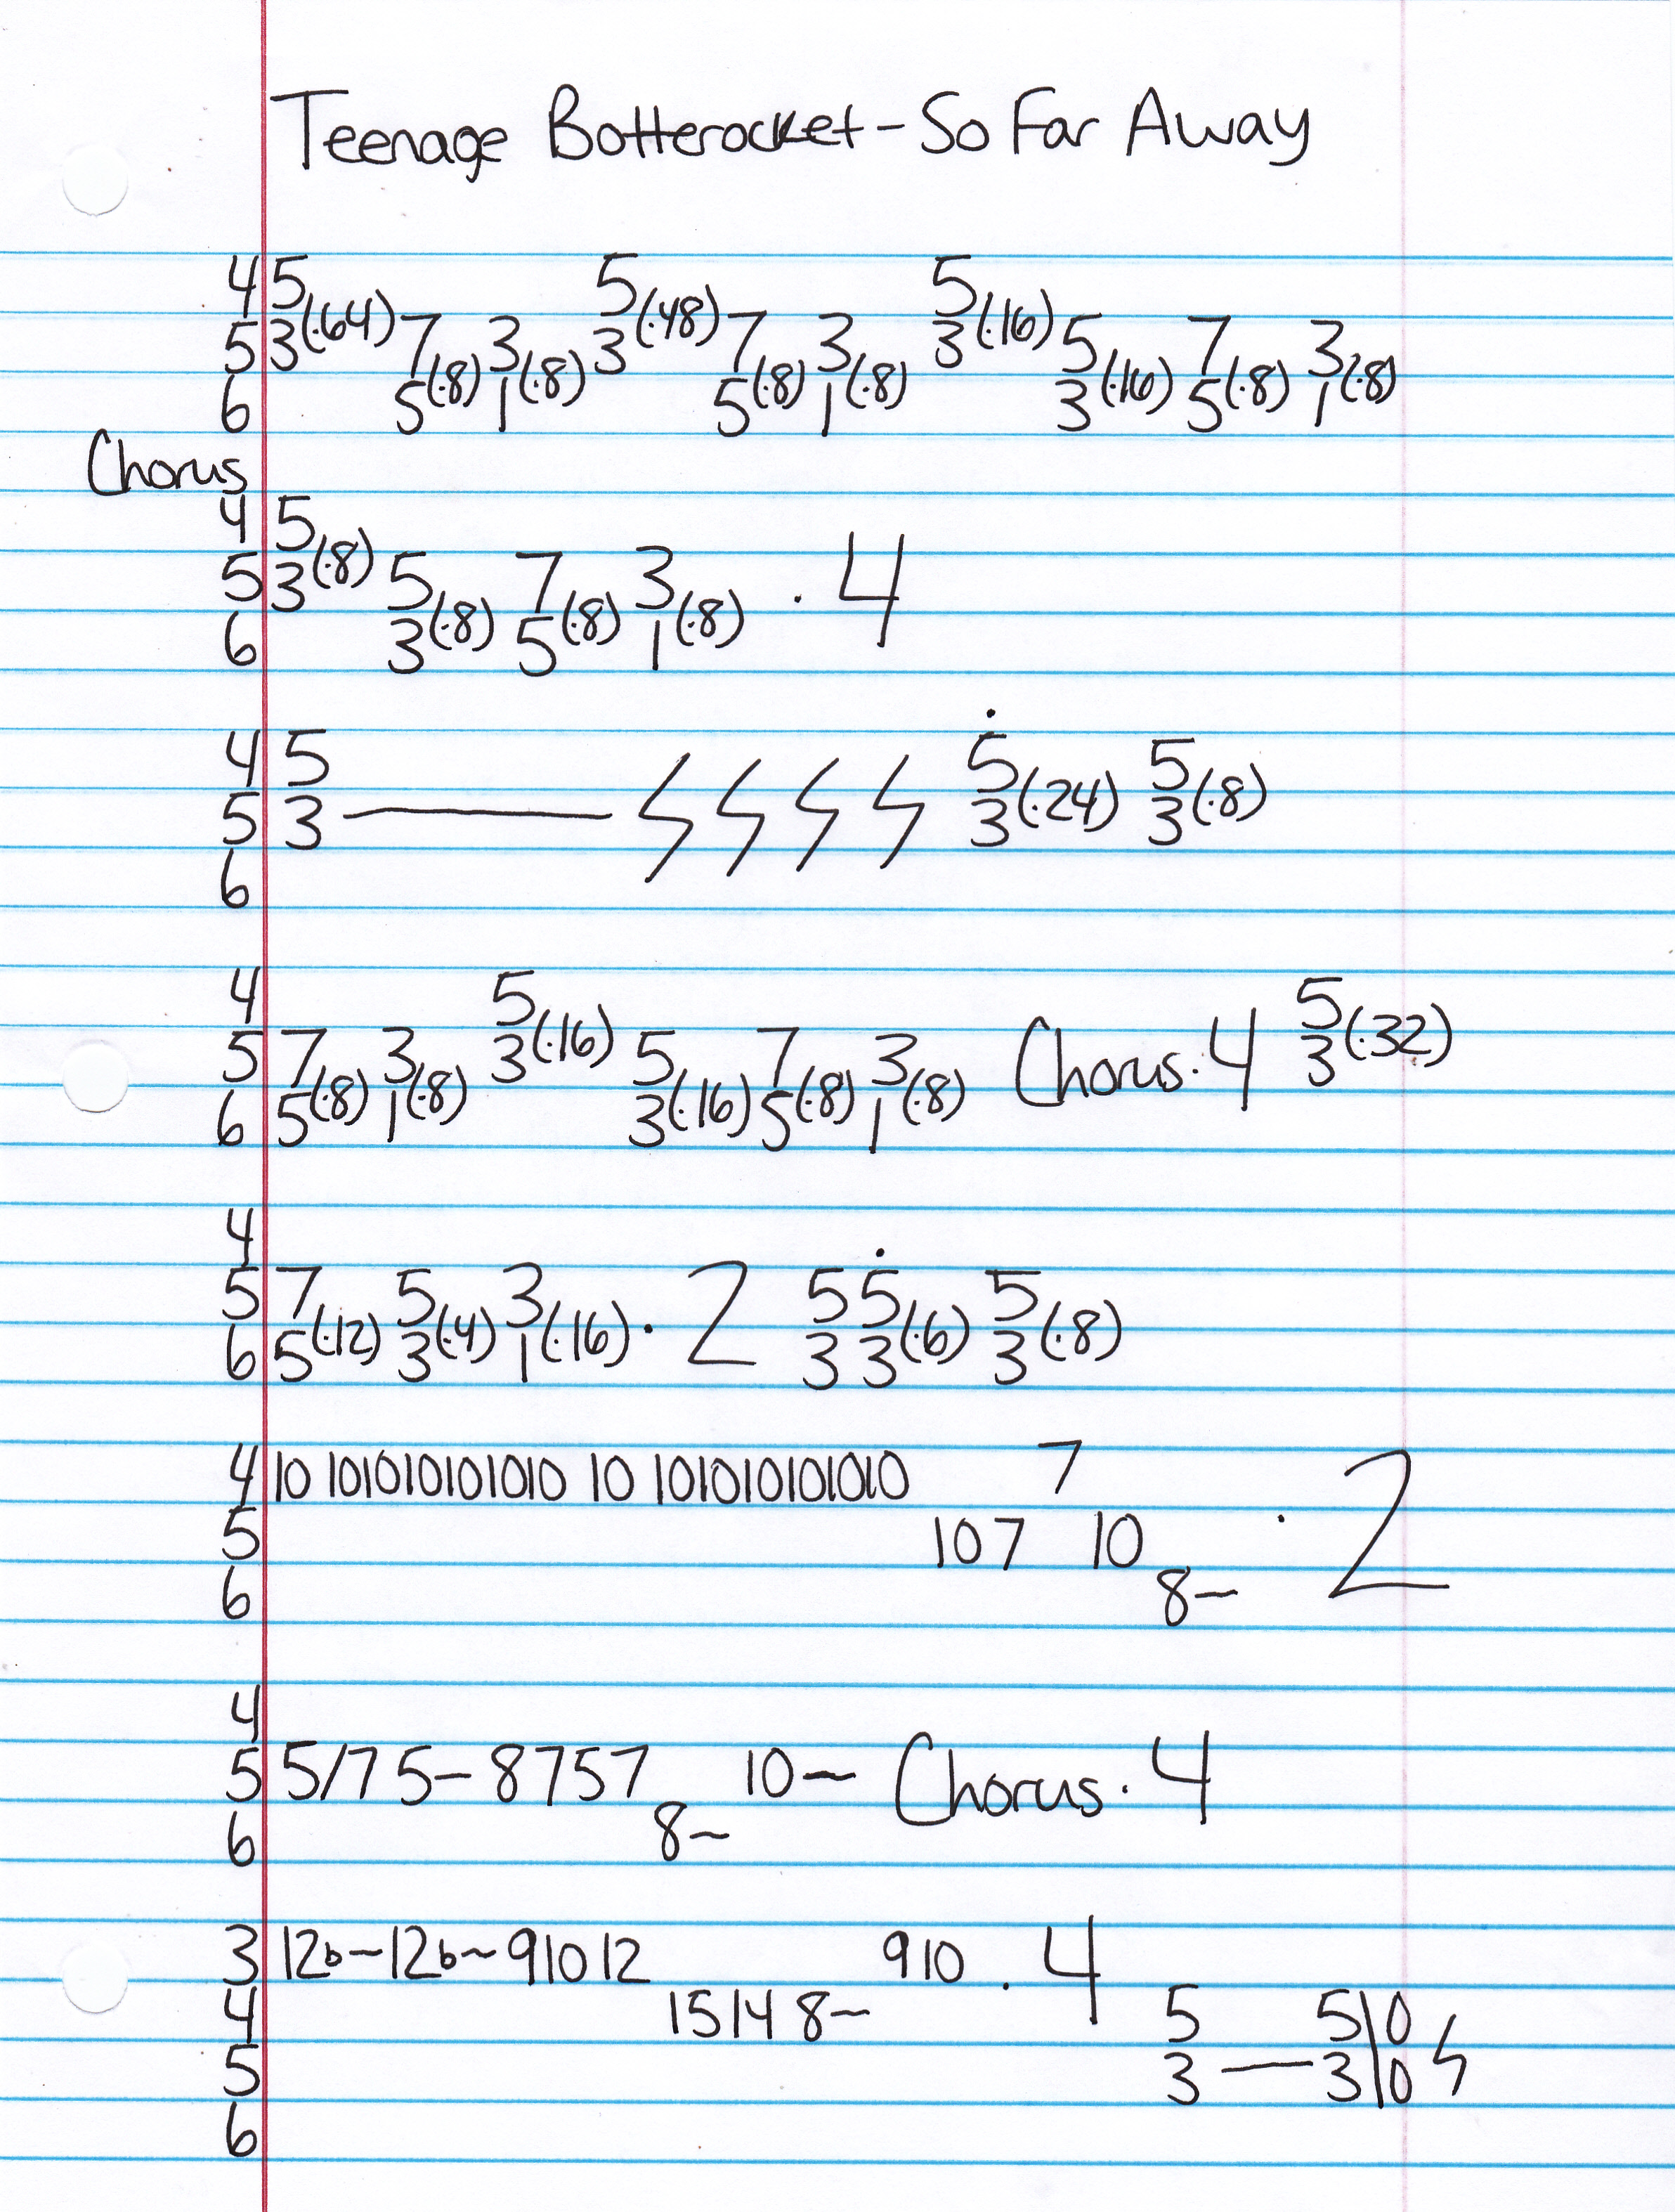 Teenage Botterocket - So Far Away
4 5 5 5
5 3(·64) 7 3 3(·48) 7 3 3(·16) 5 7 3
6 5(·8) 1(·8) 5(·8) 1(·8) 3(·16) 5(·8) 1(·8)
Chorus
4 5
5 3(·8) 5 7 3 · 4
6 3(·8) 5(·8) 1(·8)
4 5 5 5
5 3 — 3(·24) 3(·8)
6
4 5 5
5 7 3 3(·16) 5 7 3 Chorus · 4 3(·32)
6 5(·8) 1(·8) 3(·16) 5(·8) 1(·8)
4
5 7 5 3 · 2 5 5 5
6 5(·12) 3(·4) 1(·16) 3 3(·6) 3(·8)
4 10 1010101010 10 10 101010101010 7
5 10 7 10 · 2
6 8~
4
5 5/7 5- 8 7 5 7 10~ Chorus · 4
6 8~
3 12b~ 12b~ 9 10 12 9 10 · 4
4 15 14 8~ 5 5\0
5 3 — 3\0
6